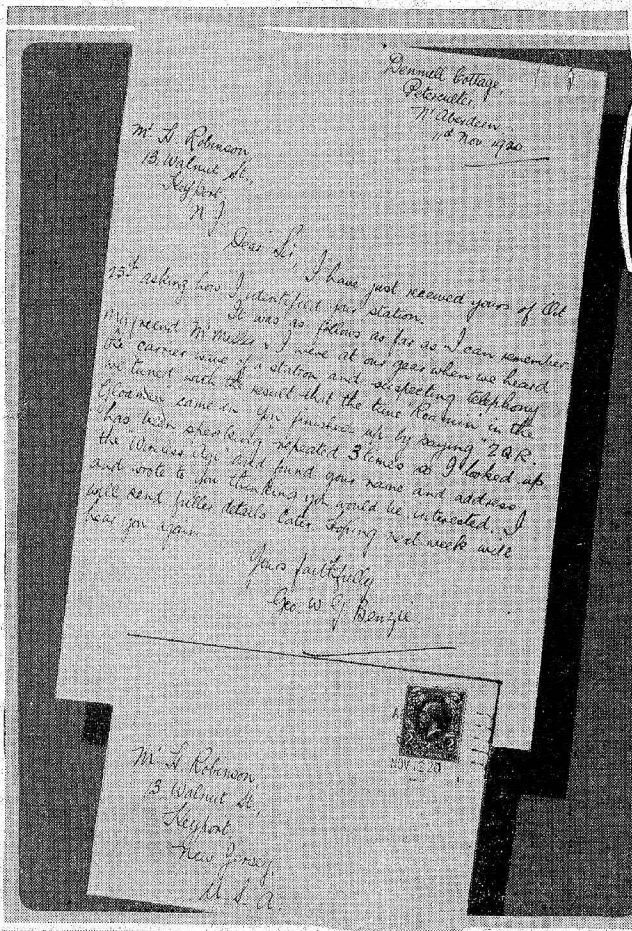 Dennell Cottage,
Peterculter,
Nr Aberdeen
11th Nov 1920
Mr H Robinson
13 Walnut St.,
Keyport
N J
Dear Sir, I have just received yours of Oct
23rd asking how I identified your station.
It was as follows as far as I can remember
My friend Mr Miller & I were at our gear when we heard
the carrier wave of a station and suspecting telephony
we tuned with the result that the tune "Roamin' in the
Gloamin" came in. You finished up by saying "2QR
has been speaking" repeated 3 times so I looked up
the Wireless Age and found your name and address
and wrote to you thinking you would be interested. I
will send fuller details later. Hoping next week will
hear you again
Yours faithfully
Geo. W G Benzie.
NOV 12 20
Mr H Robinson,
13 Walnut St.,
Keyport,
New Jersey,
U.S.A.